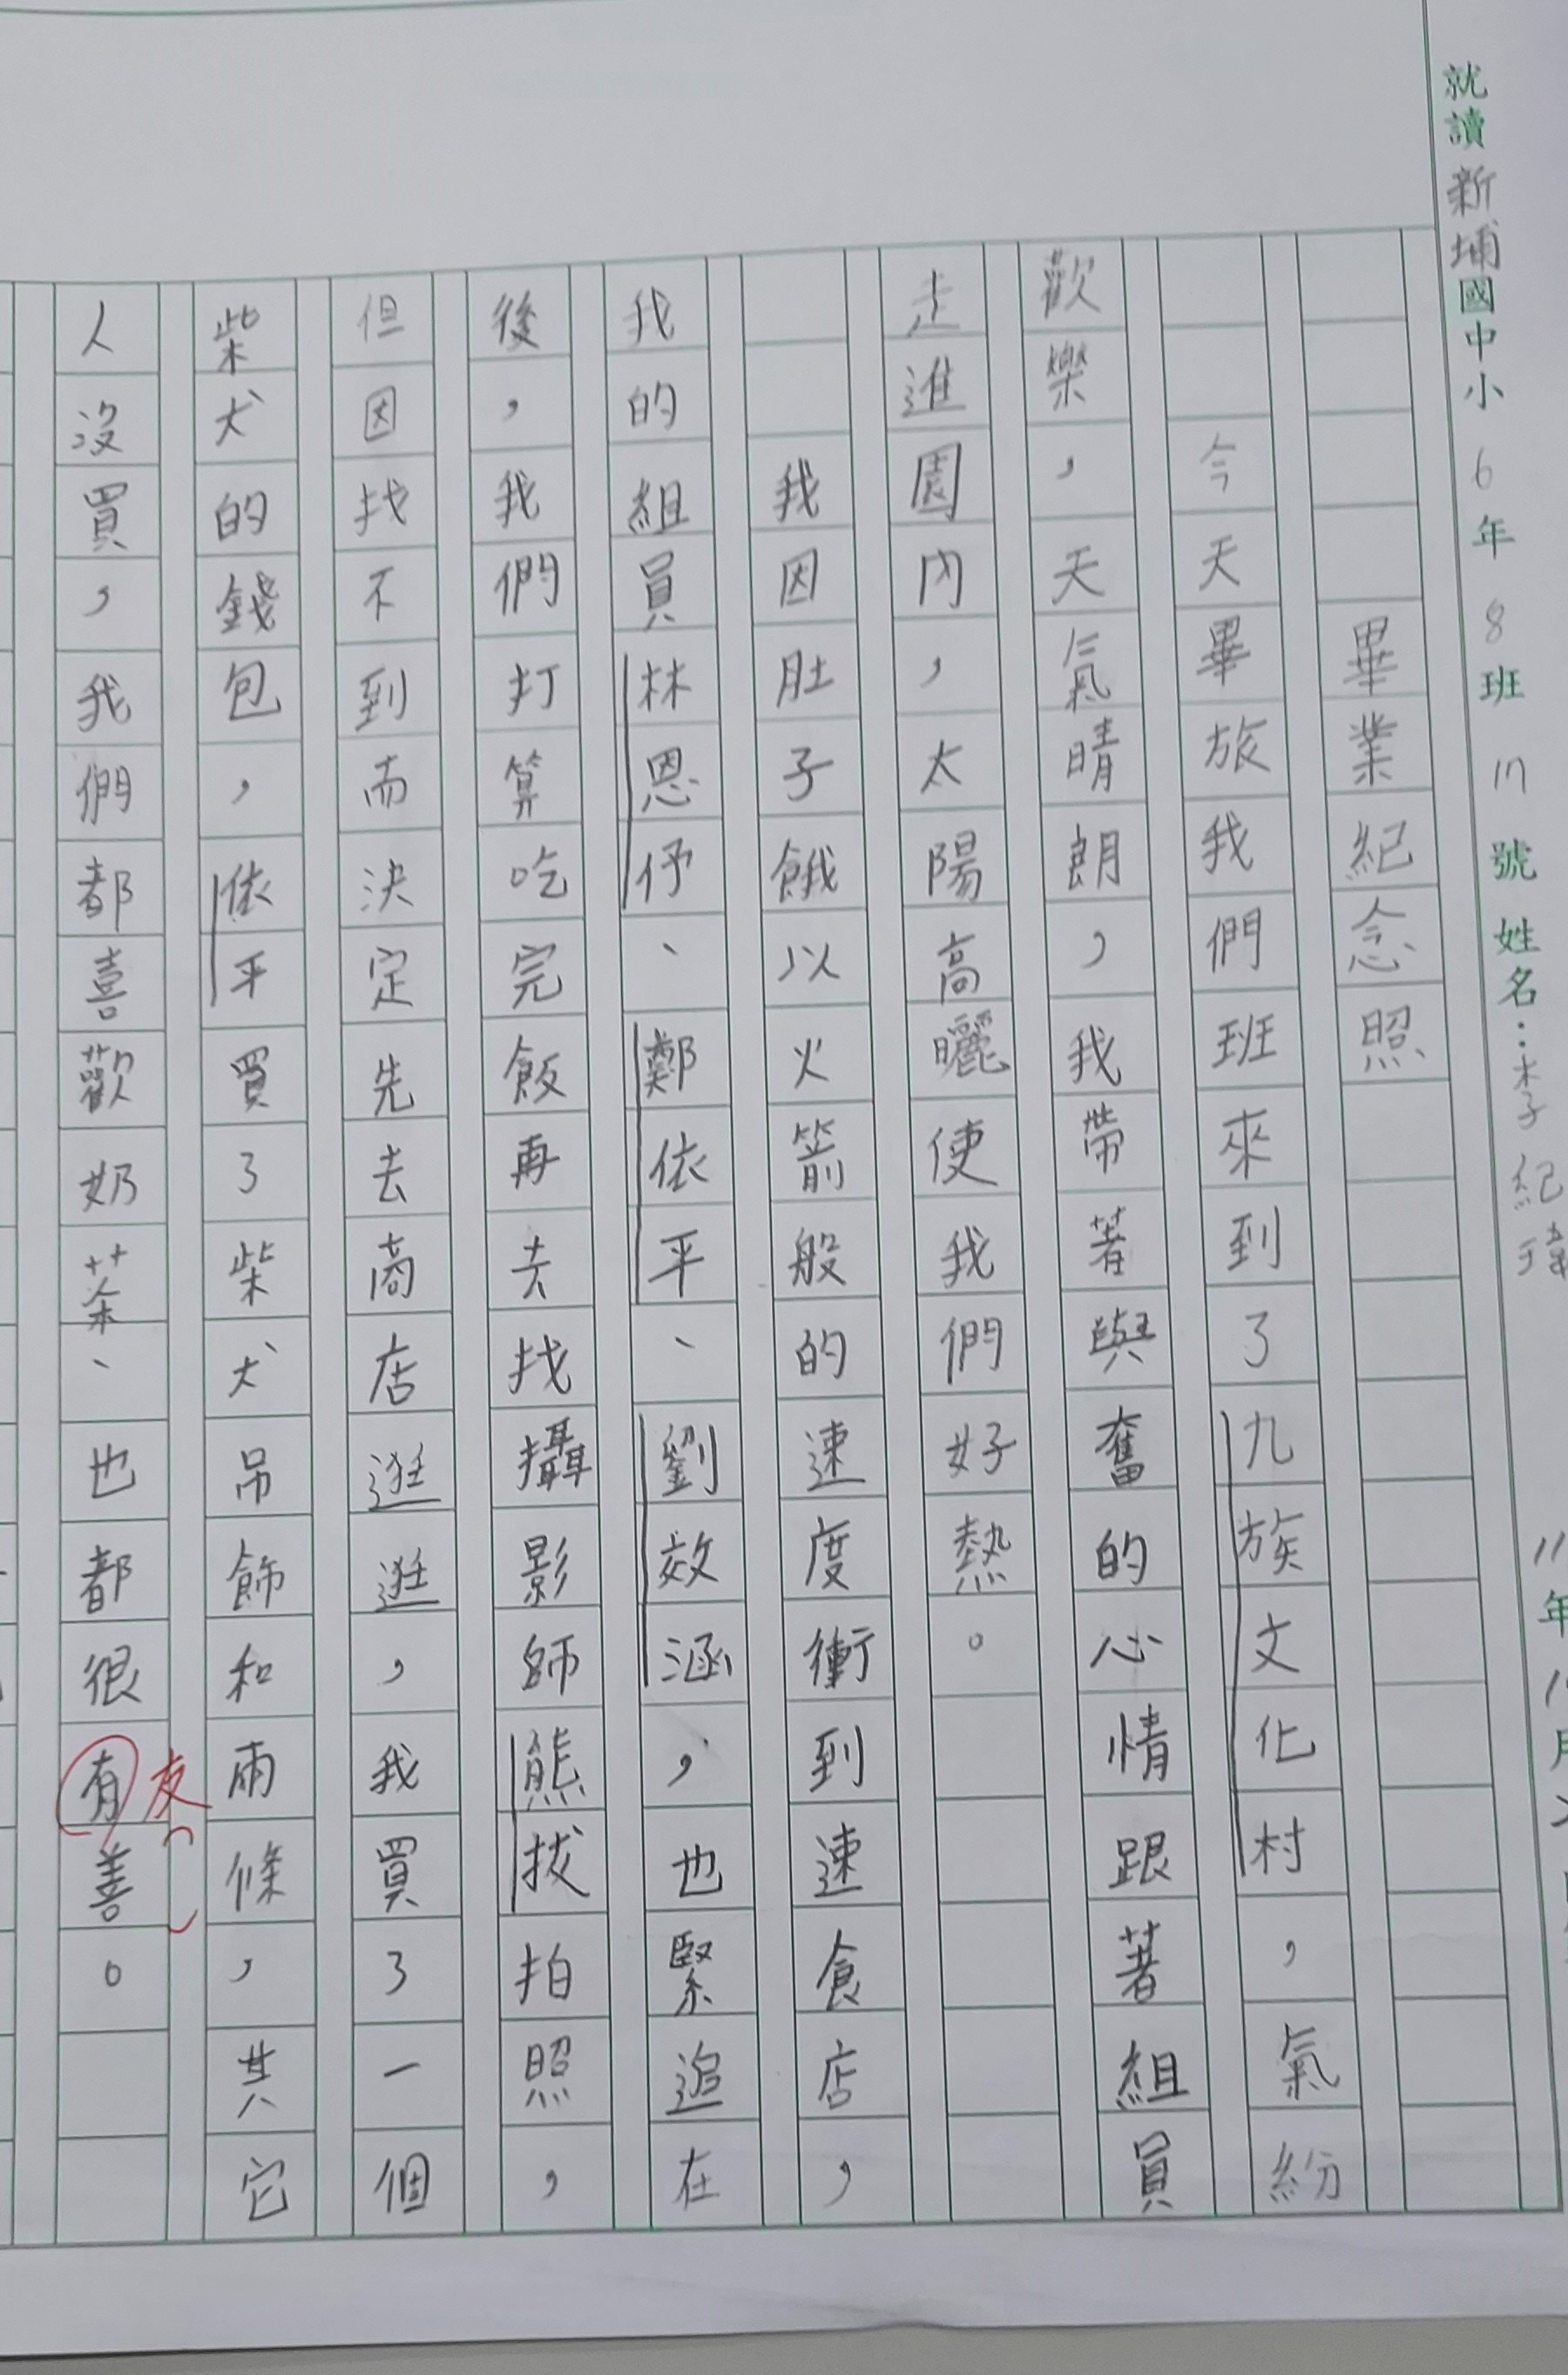 就讀新埔國中小 6年 8班 17號 姓名：李紀瑋
畢業紀念照
今天畢旅我們班來到了九族文化村，氣紛
歡樂，天氣晴朗，我帶著與奮的心情跟著組員
走進園內，太陽高曬使我們好熱。
我因肚子餓以火箭般的速度衝到速食店，
我的組員林恩伃、鄭依平、劉效涵，也緊追在
後，我們打算吃完飯再去找攝影師熊拔拍照，
但因找不到而決定先去商店逛逛，我買了一個
柴犬的錢包，依平買了柴犬吊飾和兩條，其它
人沒買，我們都喜歡奶茶、也都很有善。
友